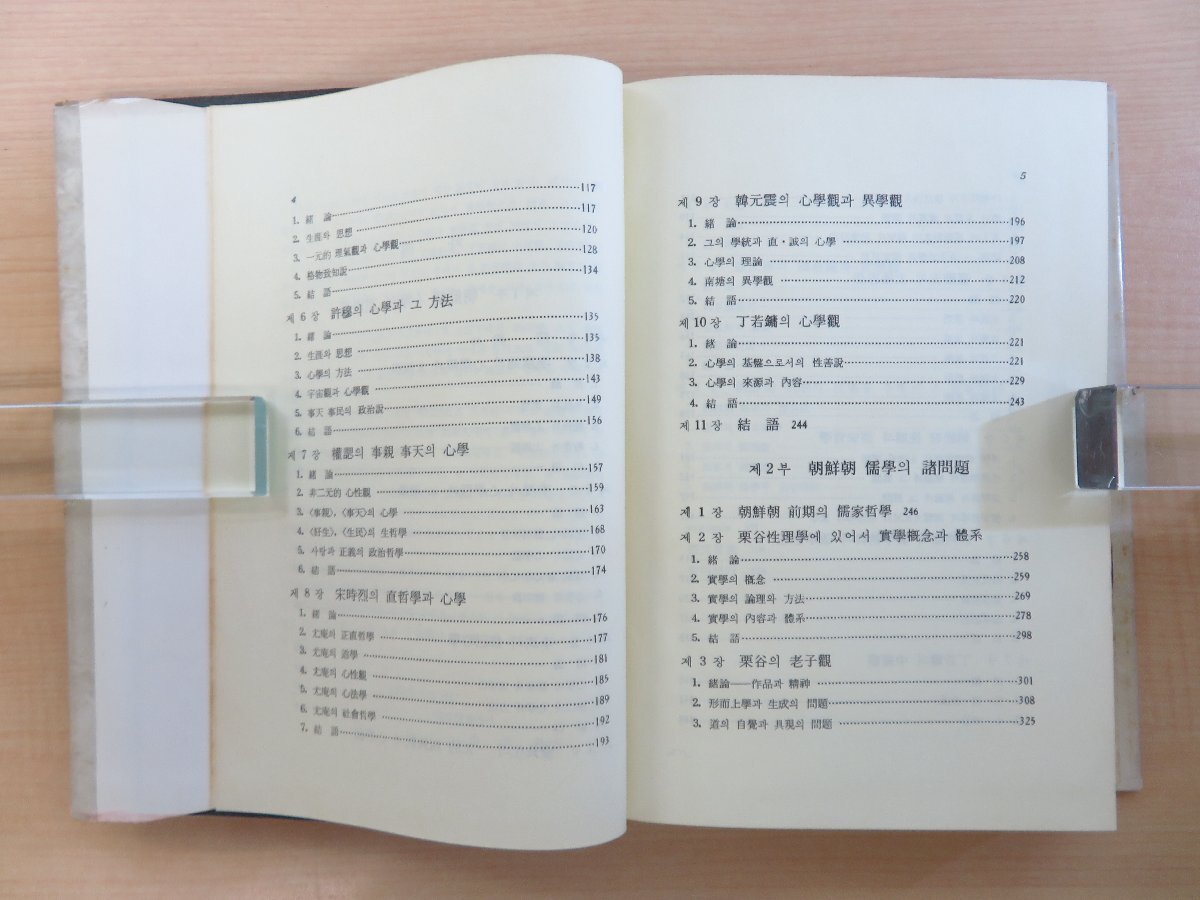 4
1. 緖 論 117
2. 生涯와 思想 117
3. 一元的 理氣觀과 心學觀 120
4. 格物致知說 128
5. 結 語 134
제 6 장 許穆의 心學과 그 方法
1. 緖 論 135
2. 生涯와 思想 135
3. 心學의 方法 138
4. 宇宙觀과 心學觀 143
5. 事天 事民의 政治說 149
6. 結 語 156
제 7 장 權諰의 事親 事天의 心學
1. 緖 論 157
2. 非二元的 心性觀 159
3. 〈事親〉, 〈事天〉의 心學 163
4. 〈好生〉, 〈生民〉의 生哲學 168
5. 사랑과 正義의 政治哲學 170
6. 結 語 174
제 8 장 宋時烈의 直哲學과 心學
1. 緖 論 176
2. 尤庵의 正直哲學 177
3. 尤庵의 道學 181
4. 尤庵의 心性觀 185
5. 尤庵의 心法學 189
6. 尤庵의 社會哲學 192
7. 結 語 193
5
제 9 장 韓元震의 心學觀과 異學觀
1. 緖 論 196
2. 그의 學統과 直·誠의 心學 197
3. 心學의 理論 208
4. 南塘의 異學觀 212
5. 結 語 220
제10장 丁若鏞의 心學觀
1. 緖 論 221
2. 心學의 基盤으로서의 性善說 221
3. 心學의 來源과 內容 229
4. 結 語 243
제11장 結 語 244
제 2 부 朝鮮朝 儒學의 諸問題
제 1 장 朝鮮朝 前期의 儒家哲學 246
제 2 장 栗谷性理學에 있어서 實學槪念과 體系
1. 緖 論 258
2. 實學의 槪念 259
3. 實學의 論理와 方法 269
4. 實學의 內容과 體系 278
5. 結 語 298
제 3 장 栗谷의 老子觀
1. 緖論——作品과 精神 301
2. 形而上學과 生成의 問題 308
3. 道의 自覺과 具現의 問題 325